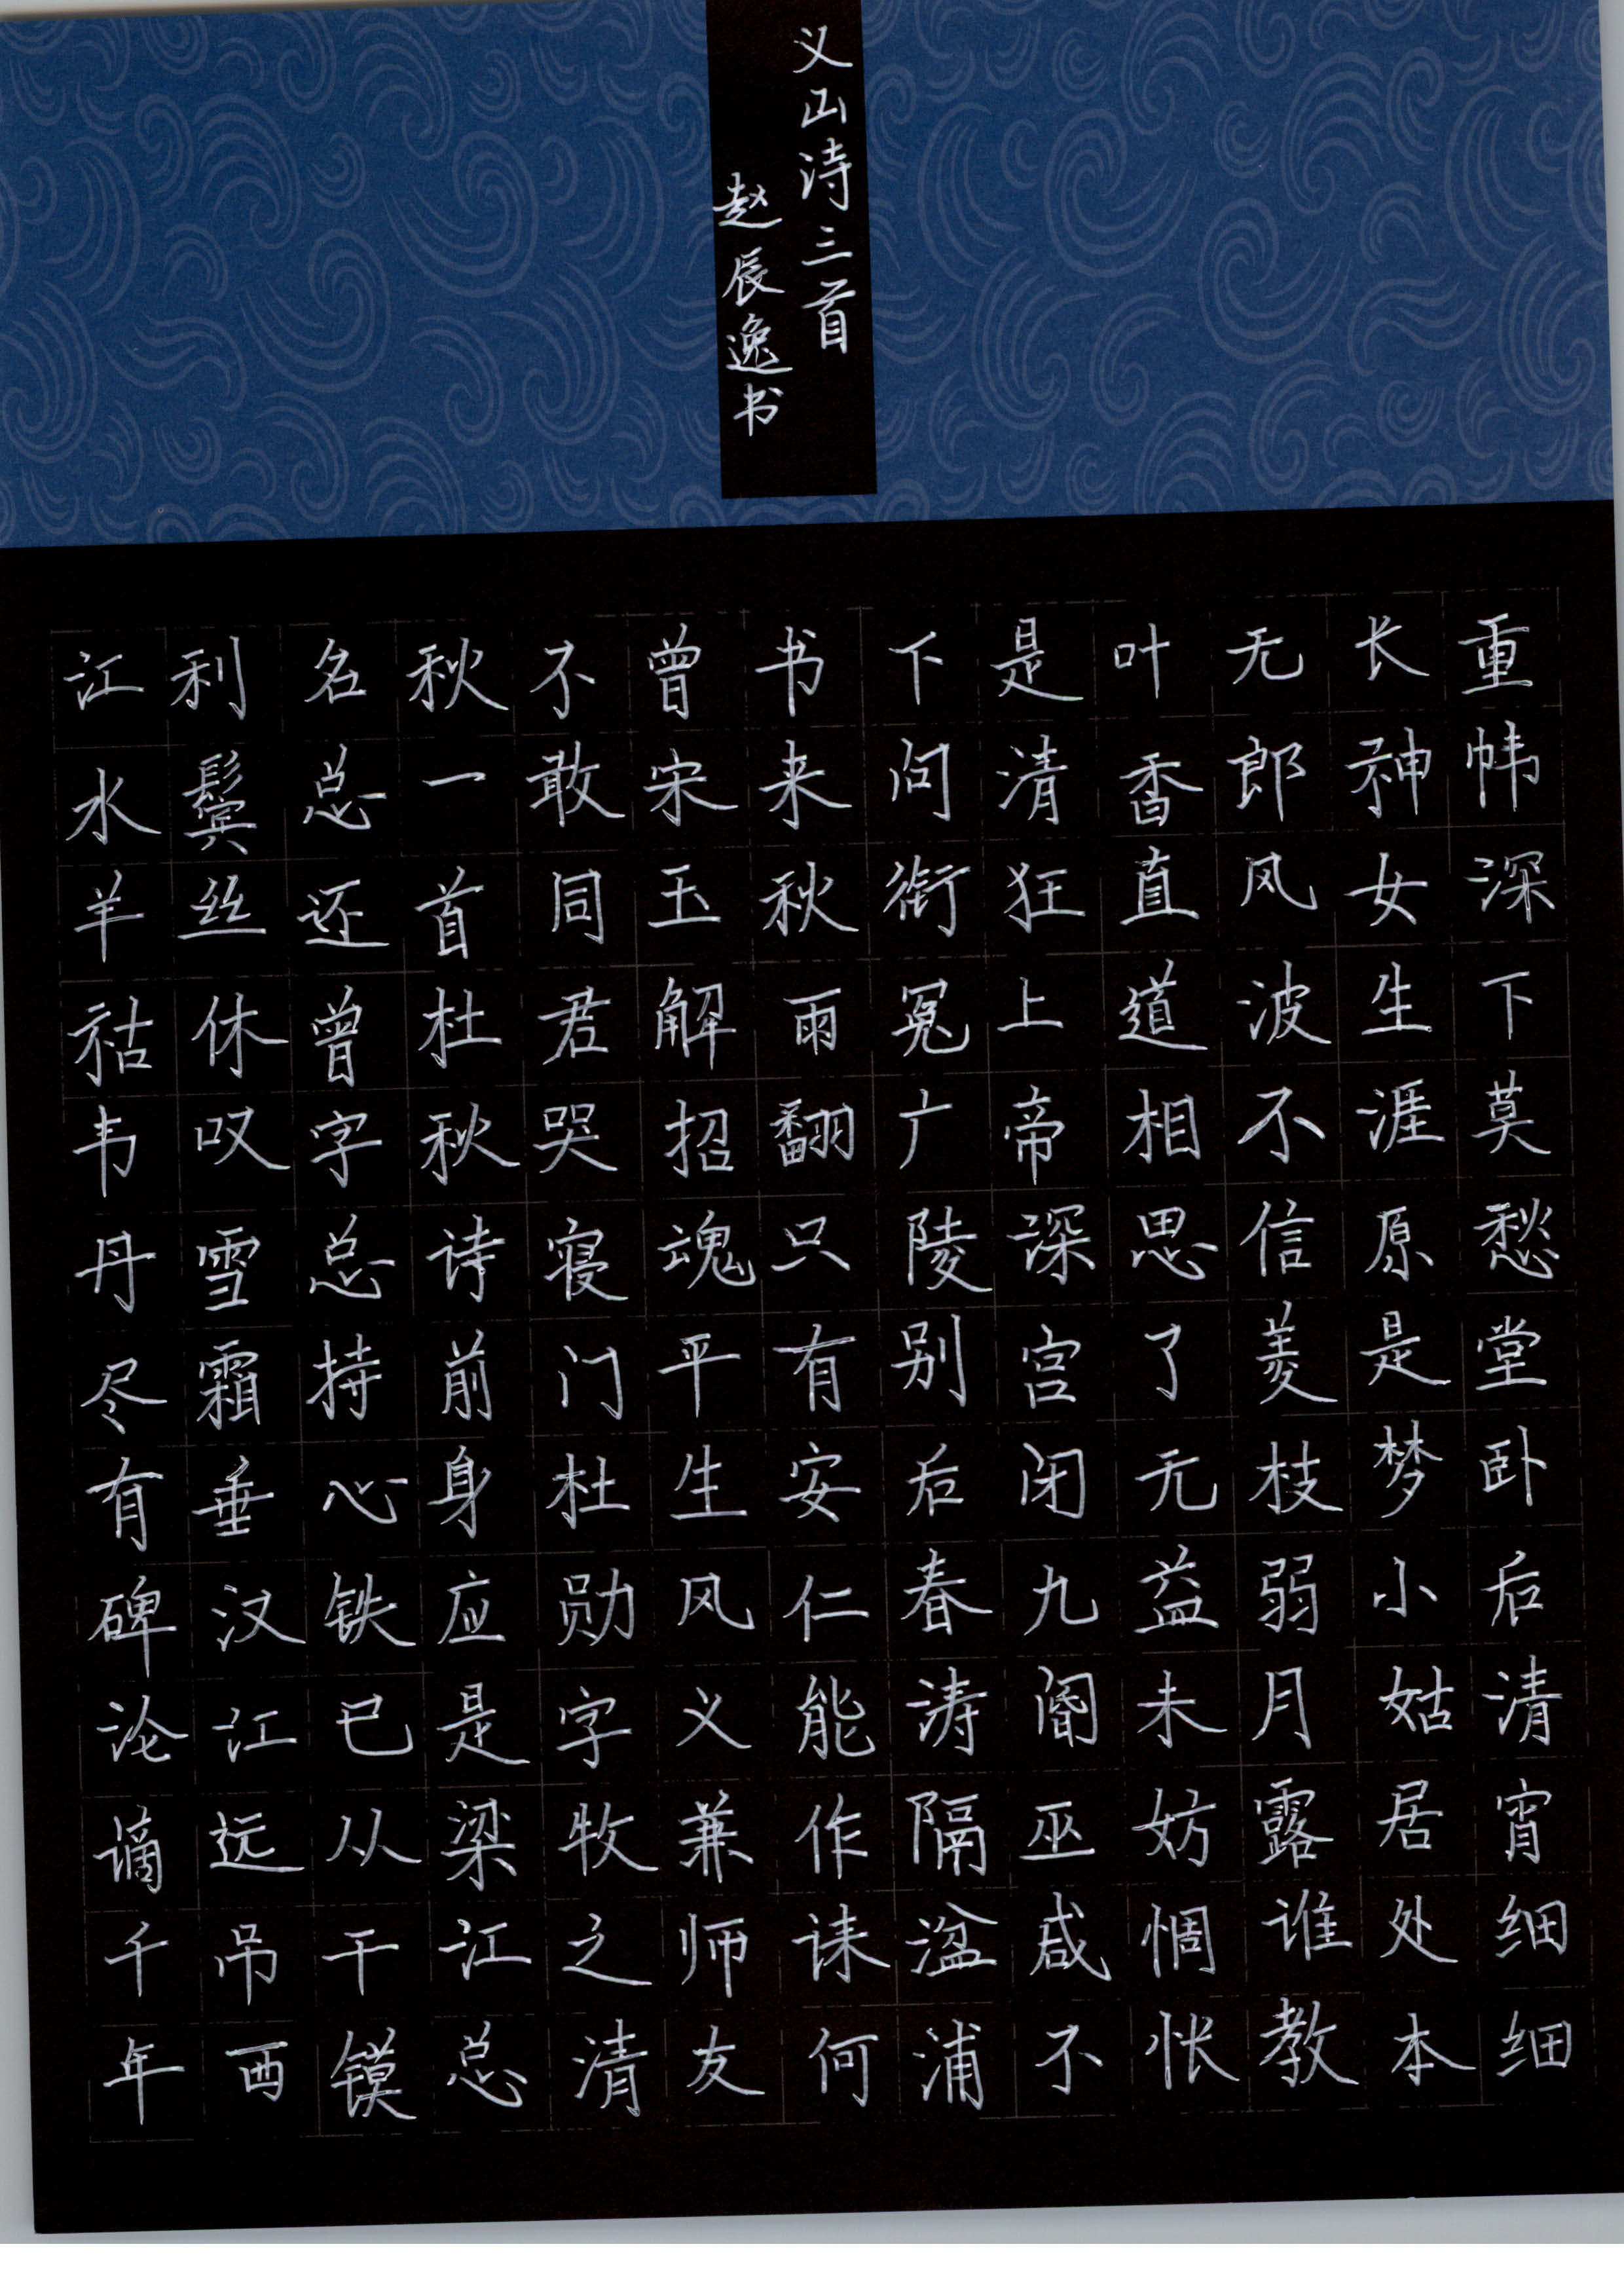 义山诗三首
赵辰逸书
重帏深下莫愁堂卧后清宵细细
长神女生涯原是梦小姑居处本
无郎风波不信菱枝弱月露谁教
叶香直道相思了无益未妨惆怅
是清狂上帝深宫闭九阍巫咸不
下问衔冤广陵别后春涛隔湓浦
书来秋雨翻只有安仁能作诔何
曾宋玉解招魂平生风义兼师友
不敢同君哭寝门杜勋字牧之清
秋一首杜秋诗前身应是梁江总
名总还曾字总持心铁已从干镆
利鬓丝休叹雪霜垂汉江远吊西
江水羊祜韦丹尽有碑沦谪千年